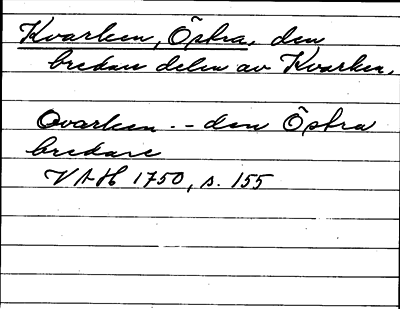 Kvarken, Östra, den
bredare delen av Kvarken.
Qvarken -- den Östra
bredare
VAH 1750, s. 155